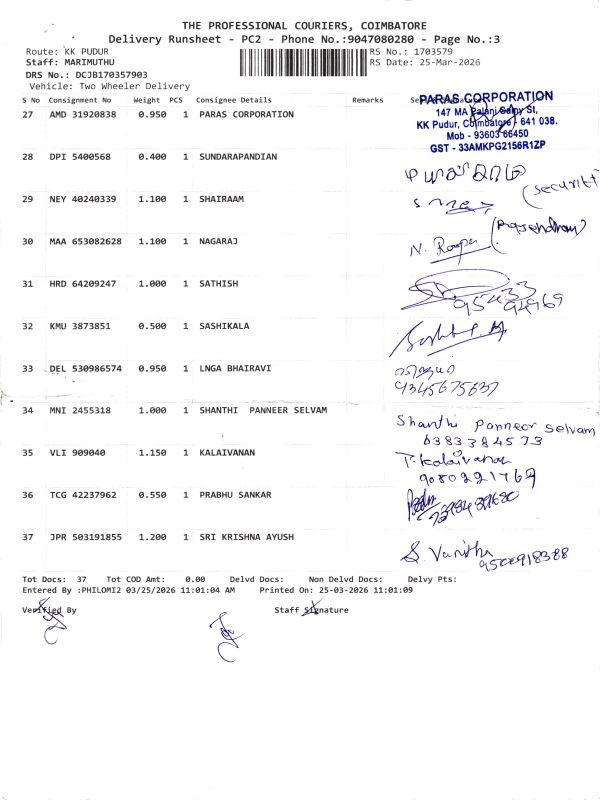 THE PROFESSIONAL COURIERS, COIMBATORE
Delivery Runsheet - PC2 - Phone No.:9047080280 - Page No.:3
Route: KK PUDUR RS No.: 1703579
Staff: MARIMUTHU RS Date: 25-Mar-2026
DRS No.: DCJB170357903
Vehicle: Two Wheeler Delivery
S No Consignment No Weight PCS Consignee Details Remarks
27 AMD 31920838 0.950 1 PARAS CORPORATION
PARAS CORPORATION
147 MA Palani Samy St,
KK Pudur, Coimbatore - 641 038.
Mob - 93603 66450
GST - 33AMKPG2156R1ZP
28 DPI 5400568 0.400 1 SUNDARAPANDIAN
29 NEY 40240339 1.100 1 SHAIRAAM
(Security
30 MAA 653082628 1.100 1 NAGARAJ
31 HRD 64209247 1.000 1 SATHISH
95433
94969
32 KMU 3873851 0.500 1 SASHIKALA
33 DEL 530986574 0.950 1 LNGA BHAIRAVI
9345675637
34 MNI 2455318 1.000 1 SHANTHI PANNEER SELVAM
Shanthi Panneer Selvam
6383384573
35 VLI 909040 1.150 1 KALAIVANAN
T. Kalaivanan
9080221769
36 TCG 42237962 0.550 1 PRABHU SANKAR
37 JPR 503191855 1.200 1 SRI KRISHNA AYUSH
S. Vanitha
9500918388
Tot Docs: 37 Tot COD Amt: 0.00 Delvd Docs: Non Delvd Docs: Delvy Pts:
Entered By :PHILOMI2 03/25/2026 11:01:04 AM Printed On: 25-03-2026 11:01:09
Verified By Staff Signature